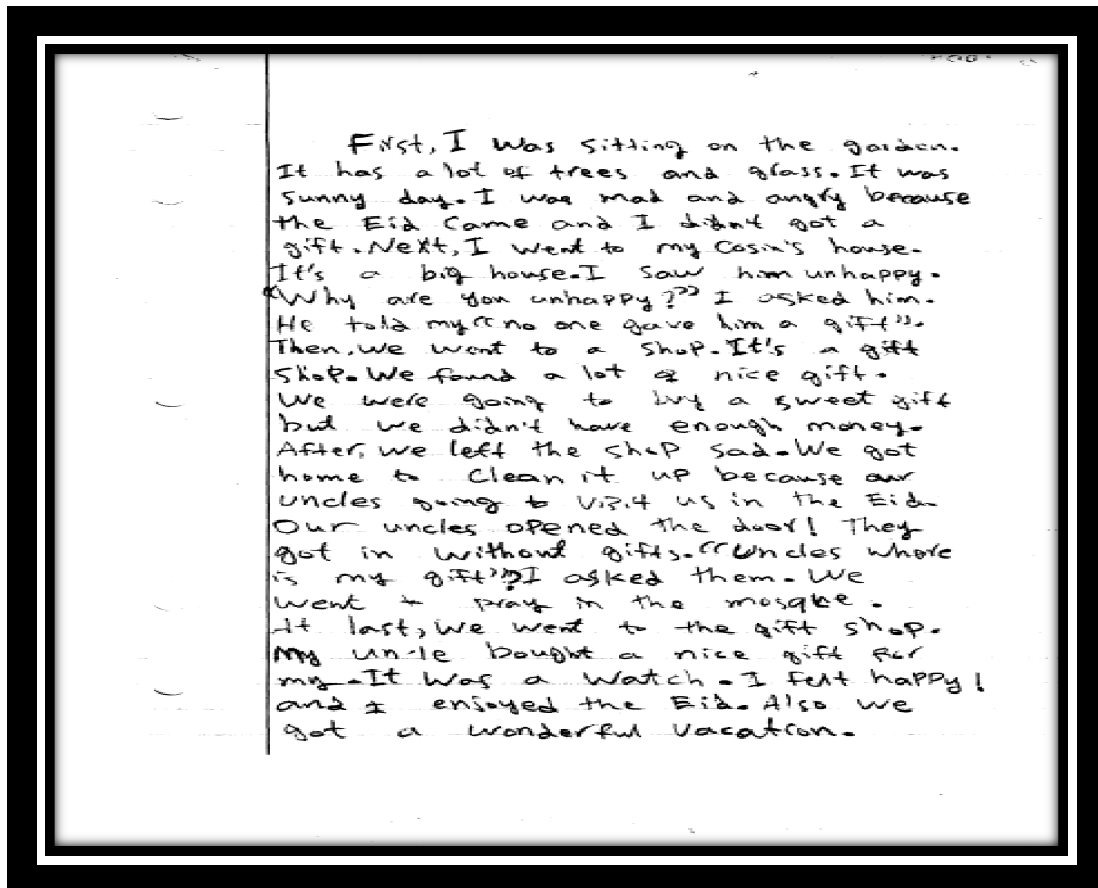 First, I was sitting on the garden.
It has a lot of trees and glass. It was
sunny day. I was mad and angry because
the Eid came and I didn't got a
gift. Next, I went to my Cosin's house.
It's a big house. I saw him unhappy.
"Why are you unhappy?" I asked him.
He told my "no one gave him a gift".
Then, we went to a shop. It's a gift
shop. We found a lot of nice gift.
We were going to buy a sweet gift
but we didn't have enough money.
After, we left the shop sad. We got
home to clean it up because our
uncles going to visit us in the Eid.
Our uncles opened the door! They
got in without gifts. "Uncles where
is my gift"? I asked them. We
went to pray in the mosqbe.
At last, we went to the gift shop.
My uncle bought a nice gift for
my. It was a watch. I felt happy!
and I enjoyed the Eid. Also we
got a wonderful vacation.